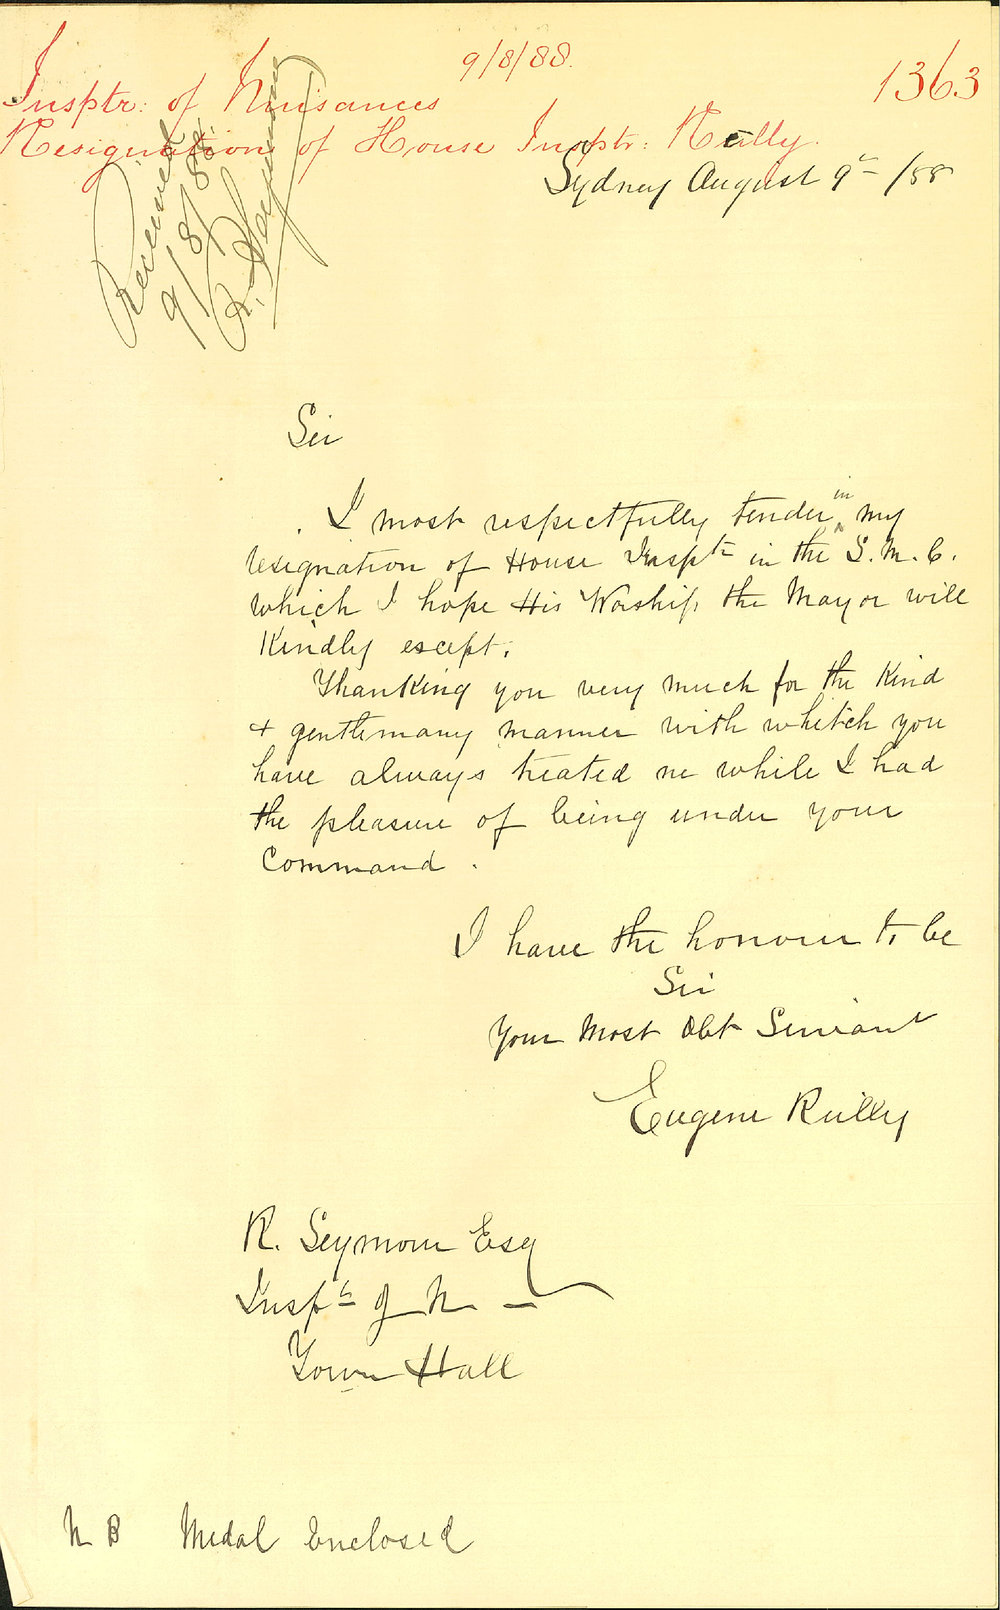 9/8/88.
1363
Insptr: of Nuisances
Resignation of House Insptr: Reilly.
Received
9/8/88
R. Seymour
Sydney August 9th /88
Sir
I most respectfully tender in my
resignation of House Insptr in the S.M.C.
which I hope His Worship the Mayor will
Kindly escept.
Thanking you very much for the Kind
& gentlemany manner with whitch you
have always treated me while I had
the pleasure of being under your
Command.
I have the honour to be
Sir
Your Most Obt Servant
Eugene Reilly
R. Seymour Esq
Insptr of N
Town Hall
N B Medal Enclosed